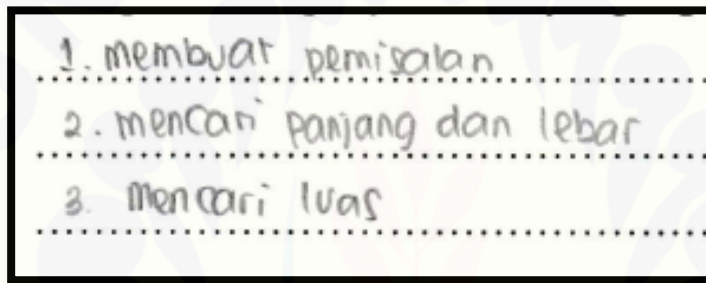 1. membuat pemisalan
2. mencari panjang dan lebar
3. mencari luas